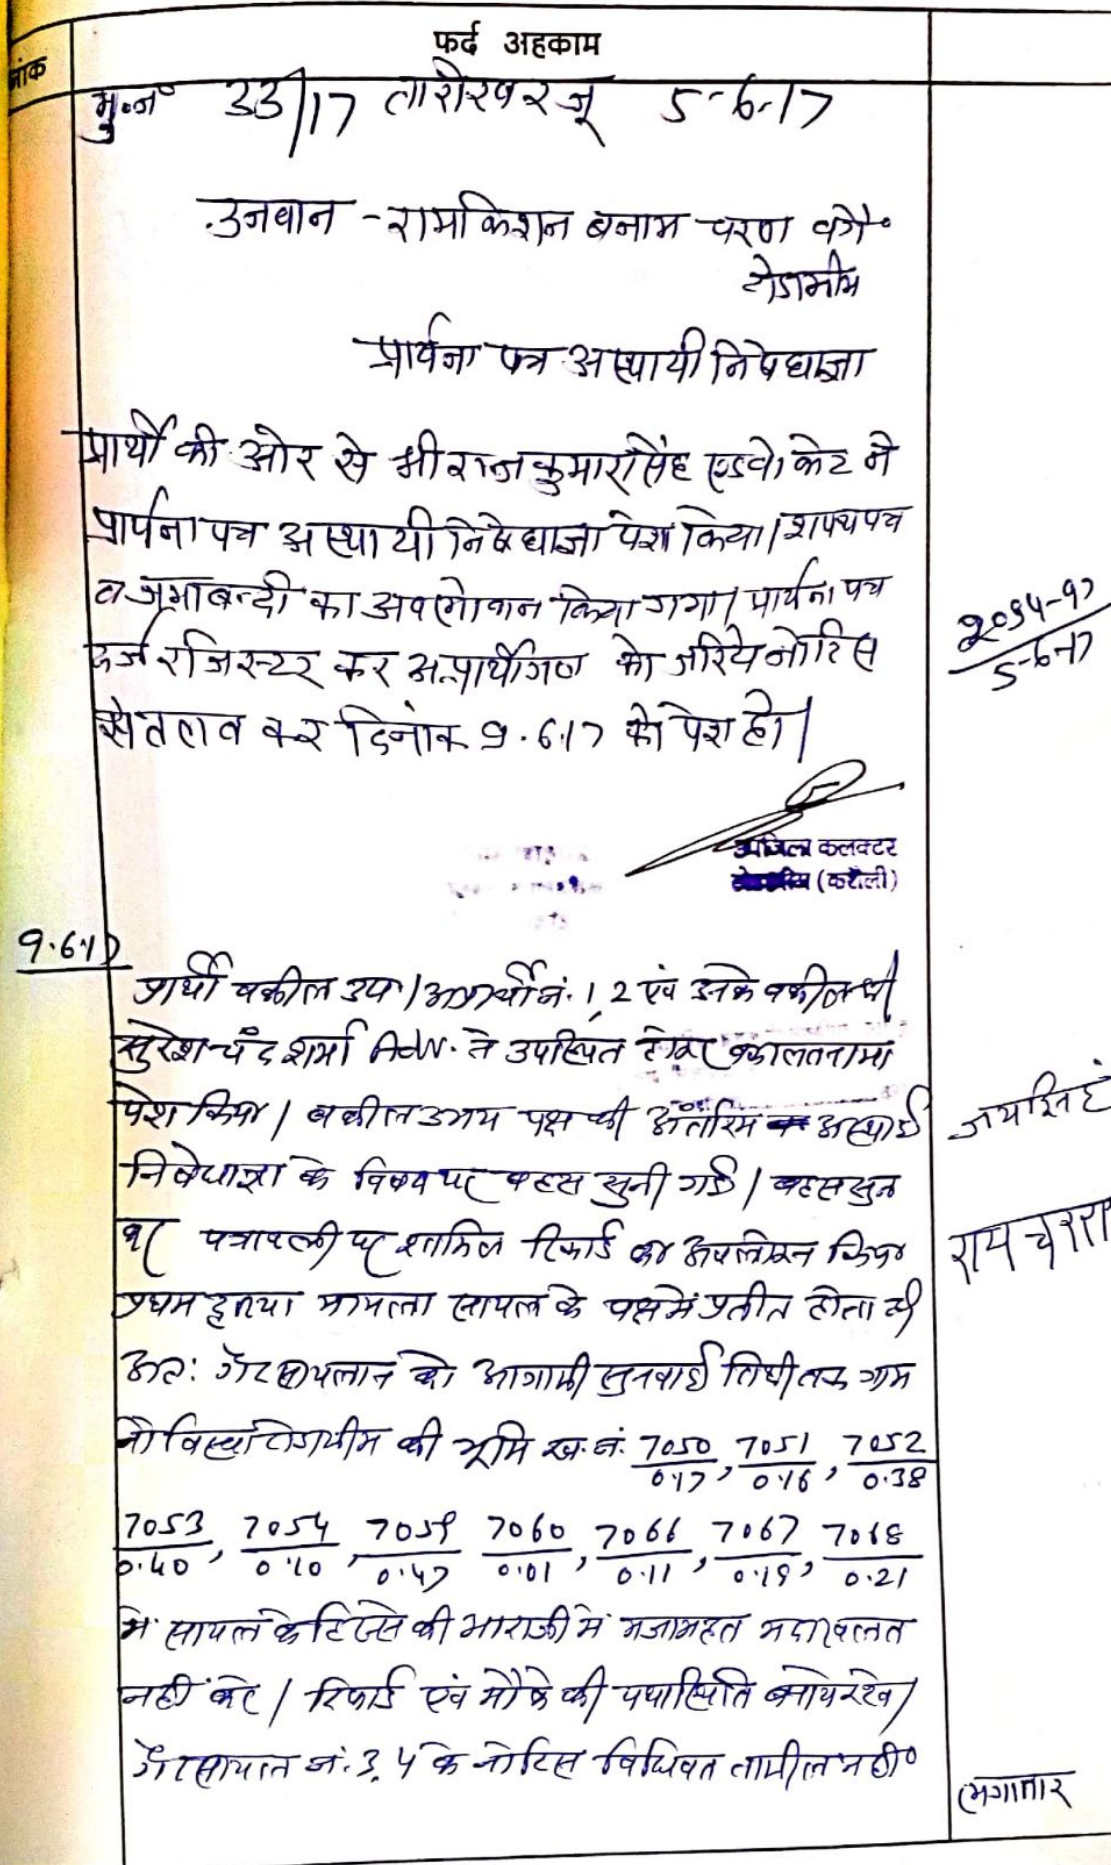 फर्द अहकाम
नांक
मु.न० 33/17 तारीख रजू 5-6-17
उनवान - रामकिशन बनाम चरण वगै०
टोडाभीम
प्रार्थना पत्र अस्थायी निषेधाज्ञा
प्रार्थी की ओर से श्री राजकुमार सिंह एडवोकेट ने
प्रार्थना पत्र अस्थायी निषेधाज्ञा पेश किया। शपथ पत्र
व जमाबन्दी का अवलोकन किया गया। प्रार्थना पत्र
दर्ज रजिस्टर कर अप्रार्थीगण को जरिये नोटिस
से तलब कर दिनांक 9.6.17 को पेश हो।
2094-97
5-6-17
उपजिला कलक्टर
टोडाभीम (करौली)
9.6.17
प्रार्थी वकील उप। अप्रार्थी नं. 1, 2 एवं उनके वकील श्री
सुरेश चंद शर्मा Adv. ने उपस्थित होकर वकालतनामा
पेश किया। वकील उभय पक्ष की अंतरिम अस्थाई
निषेधाज्ञा के विषय पर बहस सुनी गई। बहस सुन
कर पत्रावली पर शामिल रिकार्ड का अवलोकन किया
प्रथम दृष्टया मामला सायल के पक्ष में प्रतीत होता है
अत: गैरसायलान को आगामी सुनवाई तिथी तक ग्राम
की भूमि ख.नं. 7050/0.17, 7051/0.16, 7052/0.38
7053/0.40, 7054/0.10, 7059/0.47 7060/0.01, 7066/0.11, 7067/0.19, 7068/0.21
में सायल के हिस्से की आराजी में मजाहमत मदाखलत
नहीं करे। रिकार्ड एवं मौके की यथास्थिति बनाये रखे।
गैरसायल नं. 3, 4 के नोटिस विधिवत तामील नही०
जयसिंह
रामचरण
लगातार